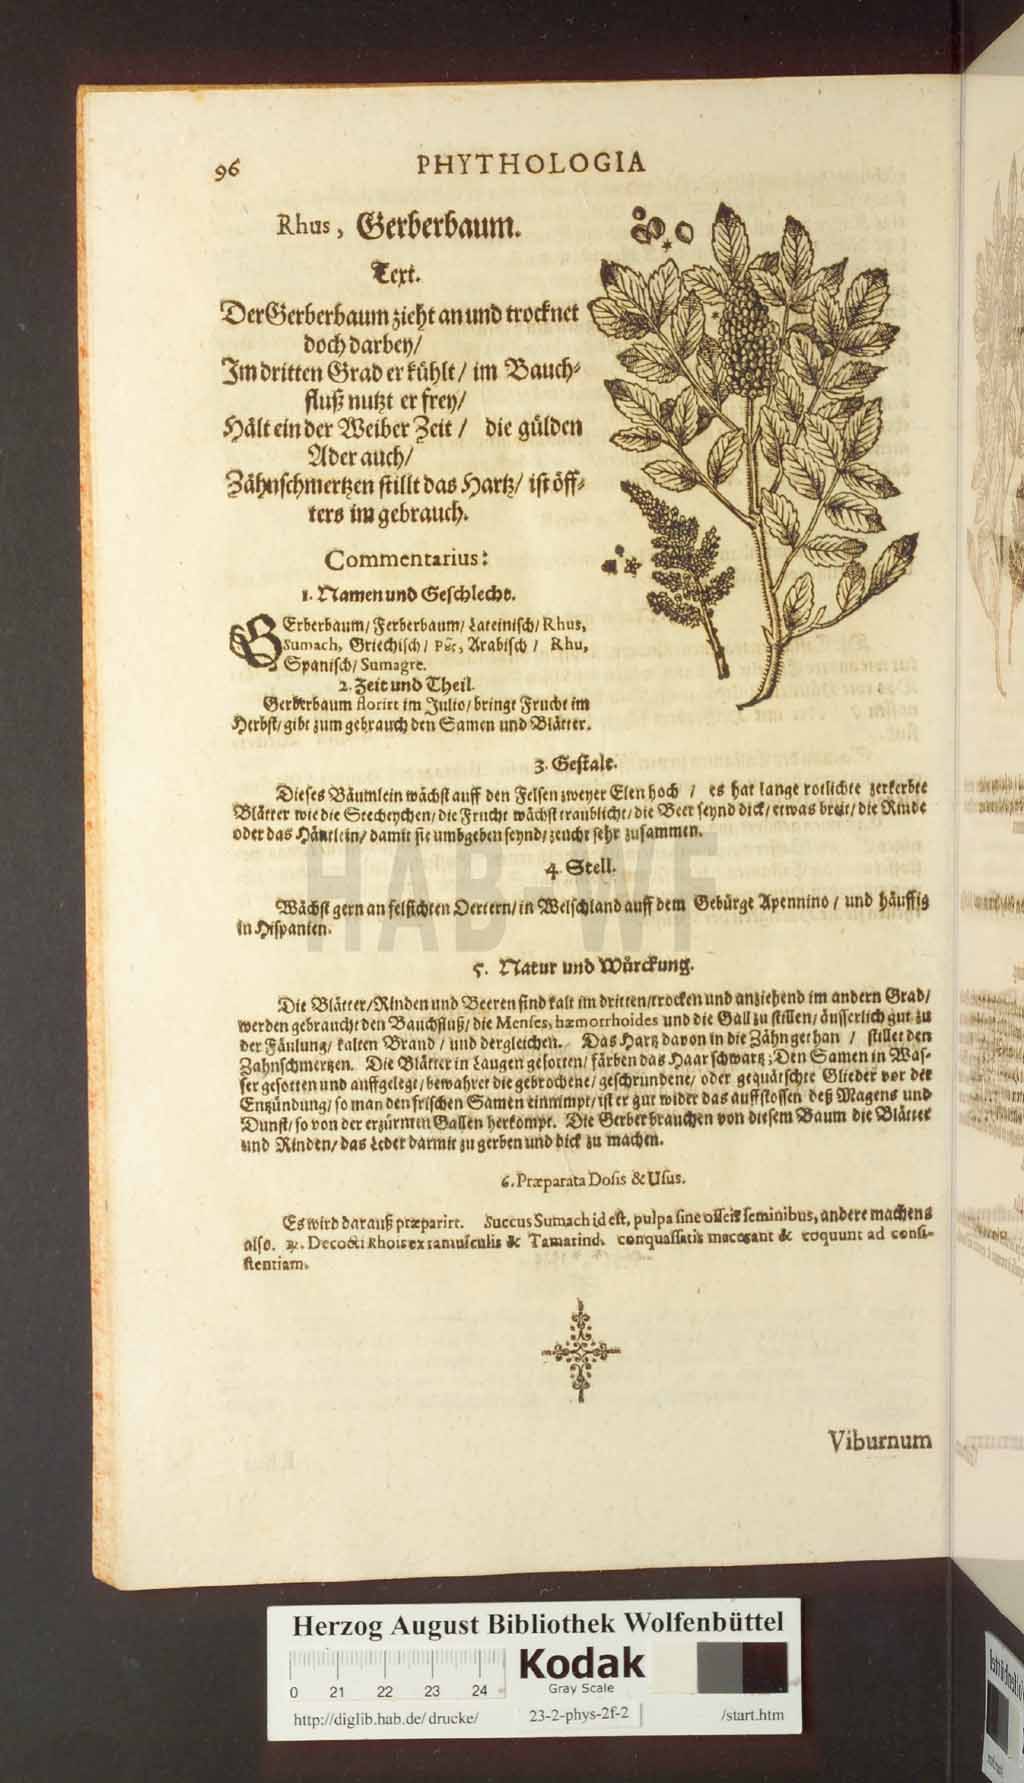 96 PHYTHOLOGIA
Rhus, Gerberbaum.
Text.
Der Gerberbaum zieht an und trocknet
doch darbey/
Im dritten Grad erkühlt/ im Bauch-
fluß nutzt er frey/
Hält ein der Weiber Zeit/ die gülden
Ader auch/
Zähnschmertzen stillt das Hartz/ ist öff-
ters im gebrauch.
Commentarius:
1. Namen und Geschlecht.
GErberbaum/ Ferberbaum/ Lateinisch/ Rhus,
Sumach, Griechisch/ Ῥοῦς, Arabisch/ Rhu,
Spanisch/ Sumagre.
2. Zeit und Theil.
Gerberbaum florirt im Julio/ bringt Frucht im
Herbst/ gibt zum gebrauch den Samen und Blätter.
3. Gestalt.
Dieses Bäumlein wächst auff den Felsen zweyer Elen hoch/ es hat lange rotlichte zerkerbte
Blätter wie die Stecheychen/ die Frucht wächst traublicht/ die Beer seynd dick/ etwas breit/ die Rinde
oder das Häutlein/ damit sie umbgeben seynd/ zeucht sehr zusammen.
4. Stell.
Wächst gern an felsichten Oertern/ in Welschland auff dem Gebürge Apennino/ und häuffig
in Hispanien.
5. Natur und Würckung.
Die Blätter/ Rinden und Beeren sind kalt im dritten/ trocken und anziehend im andern Grad/
werden gebraucht den Bauchfluß/ die Menses, hæmorrhoides und die Gall zu stillen/ äusserlich gut zu
der Fäulung/ kalten Brand/ und dergleichen. Das Hartz davon in die Zähn gethan/ stillet den
Zahnschmertzen. Die Blätter in Laugen gesotten/ färben das Haar schwartz; Den Samen in Was-
ser gesotten und auffgelegt/ bewahret die gebrochene/ geschrundene/ oder gequätschte Glieder vor der
Entzündung/ so man den frischen Samen einnimpt/ ist er gut wider das auffstossen deß Magens und
Dunst/ so von der erzürnten Gallen herkompt. Die Gerber brauchen von diesem Baum die Blätter
und Rinden/ das Leder darmit zu gerben und dick zu machen.
6. Præparata Dosis & Usus.
Es wird darauß præparirt. Succus Sumach id est, pulpa sine osseis seminibus, andere machens
also. ℞. Decocti Rhois ex ramusculis & Tamarind. conquassatis macerant & coquunt ad consi-
stentiam.
Viburnum
HAB-WF
Herzog August Bibliothek Wolfenbüttel
0 21 22 23 24
Kodak
Gray Scale
http://diglib.hab.de/drucke/ 23-2-phys-2f-2 /start.htm